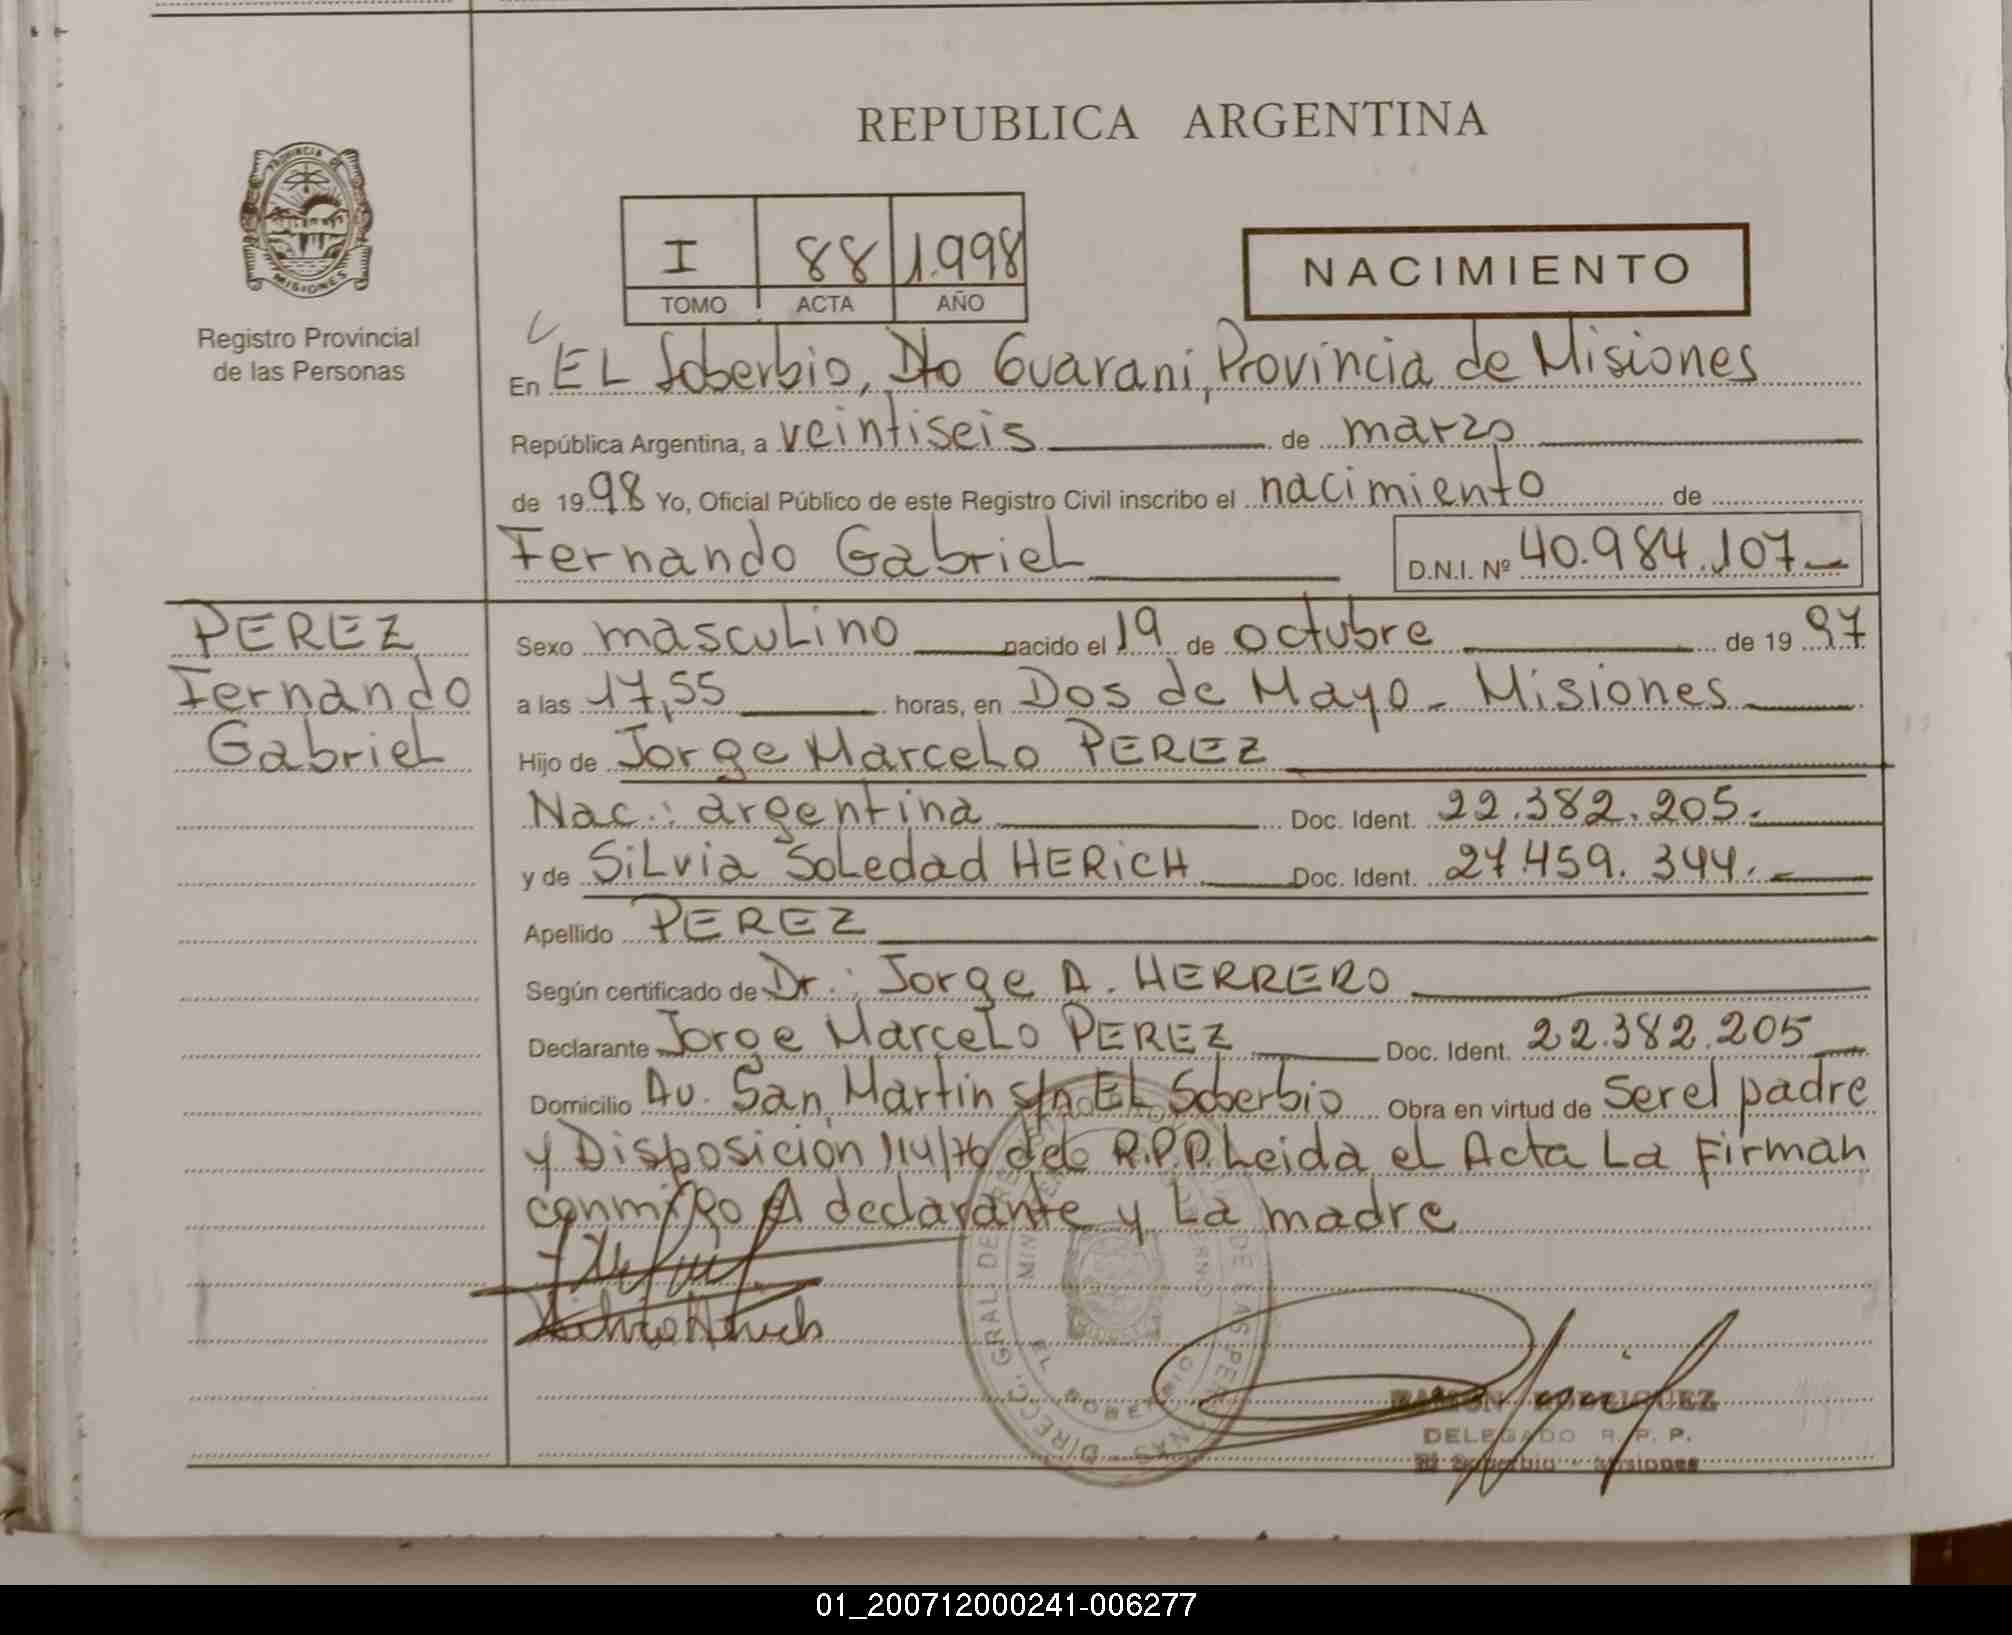 REPUBLICA ARGENTINA
PROVINCIA DE
MISIONES
Registro Provincial
de las Personas
I 88 1.998
TOMO ACTA AÑO
NACIMIENTO
En EL Soberbio, Dto Guarani, Provincia de Misiones
República Argentina, a veintiseis de marzo
de 1998 Yo, Oficial Público de este Registro Civil inscribo el nacimiento de
Fernando Gabriel D.N.I. Nº 40.984.107
PEREZ
Fernando
Gabriel
Sexo masculino nacido el 19 de octubre de 1997
a las 17,55 horas, en Dos de Mayo - Misiones
Hijo de Jorge Marcelo PEREZ
Nac.: argentina Doc. Ident. 22.382.205.
y de Silvia Soledad HERICH Doc. Ident. 27.459.344.
Apellido PEREZ
Según certificado de Dr.: Jorge A. HERRERO
Declarante Jorge Marcelo PEREZ Doc. Ident. 22.382.205
Domicilio Av. San Martin s/n EL Soberbio Obra en virtud de Ser el padre
y Disposición 114/76 del R.P.P. Leida el Acta La Firman
conmigo el declarante y La madre
DIRECC. GRAL DE LAS PERSONAS
RAMON RODRIGUEZ
DELEGADO R. P. P.
El Soberbio - Misiones
01_200712000241-006277